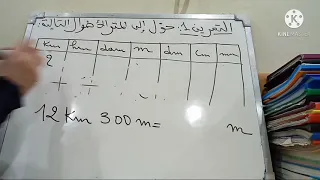 التمرين 1: حول إلى المتر الأطوال التالية:
km hm dam m dm cm mm
2
12 Km 300 m = m
KINEMASTER